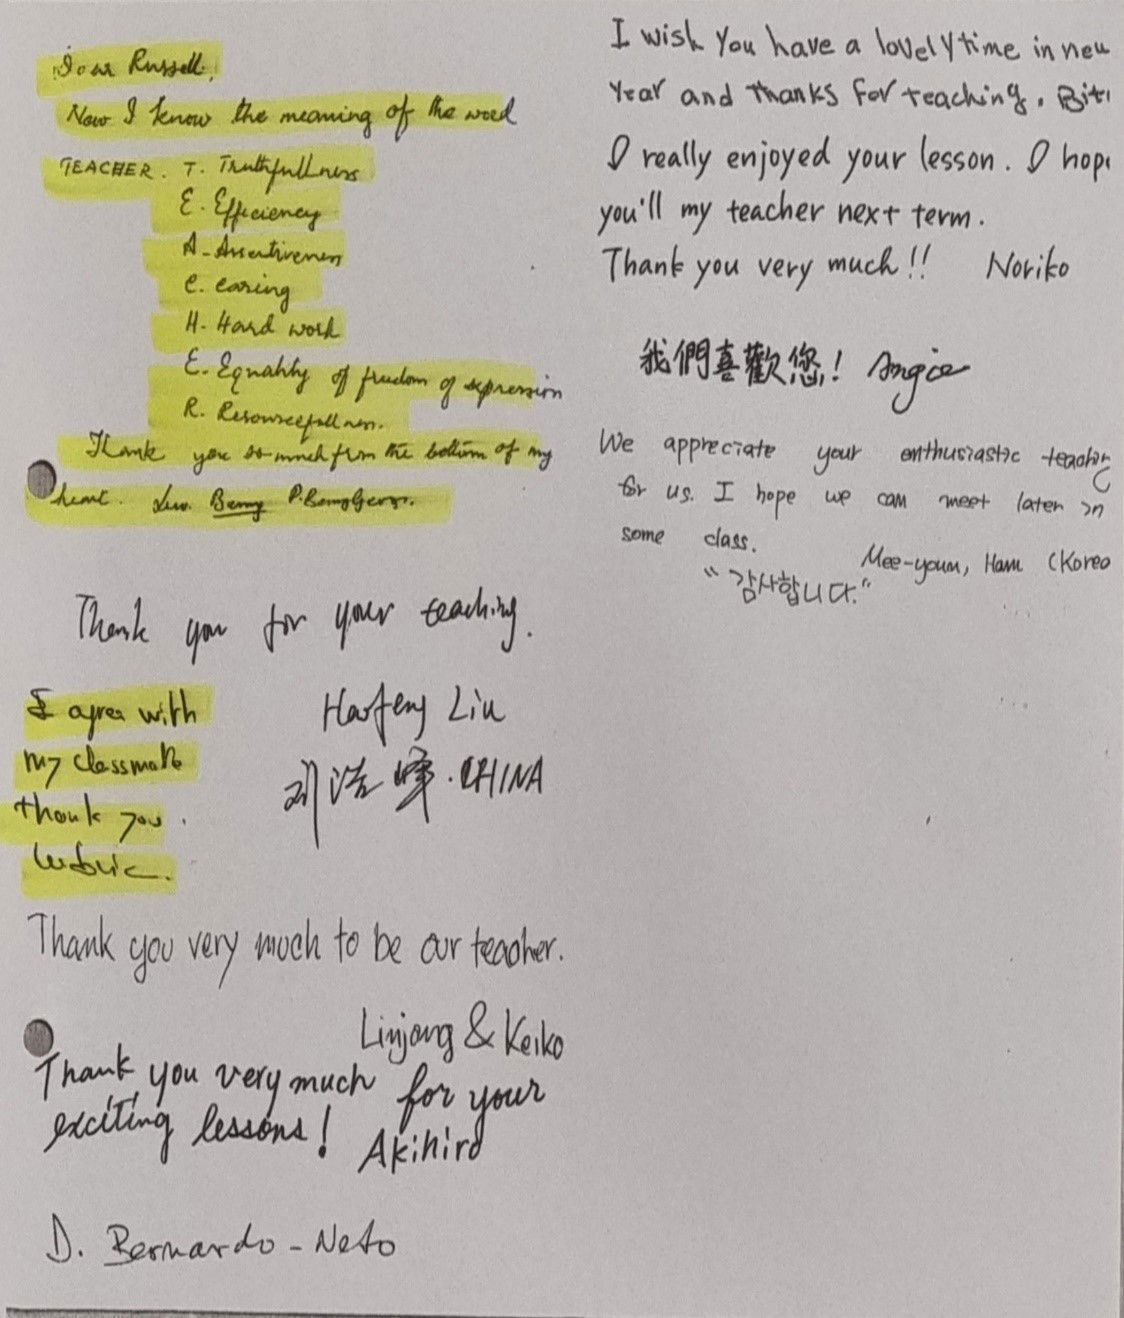 Dear Russell,
Now I know the meaning of the word
TEACHER. T. Truthfullness
E. Efficiency
A- Assertiveness
C. Caring
H- Hard work
E. Equality of freedom of expression
R. Resourcefullness.
Thank you so much from the bottom of my
heart. Luv. Beny
Thank you for your teaching.
Haofeng Liu
刘浩峰. CHINA
I agree with
my classmate
thank you.
Thank you very much to be our teacher.
Linjong & Keiko
Thank you very much for your
exciting lessons!
Akihiro
D. Bernardo-Neto
I wish you have a lovely time in new
Year and thanks for teaching.
I really enjoyed your lesson. I hope
you'll my teacher next term.
Thank you very much!! Noriko
我們喜歡您! Angie
We appreciate your enthusiastic teaching
for us. I hope we can meet later in
some class.
Mee-youn, Ham (Korea
"감사합니다."